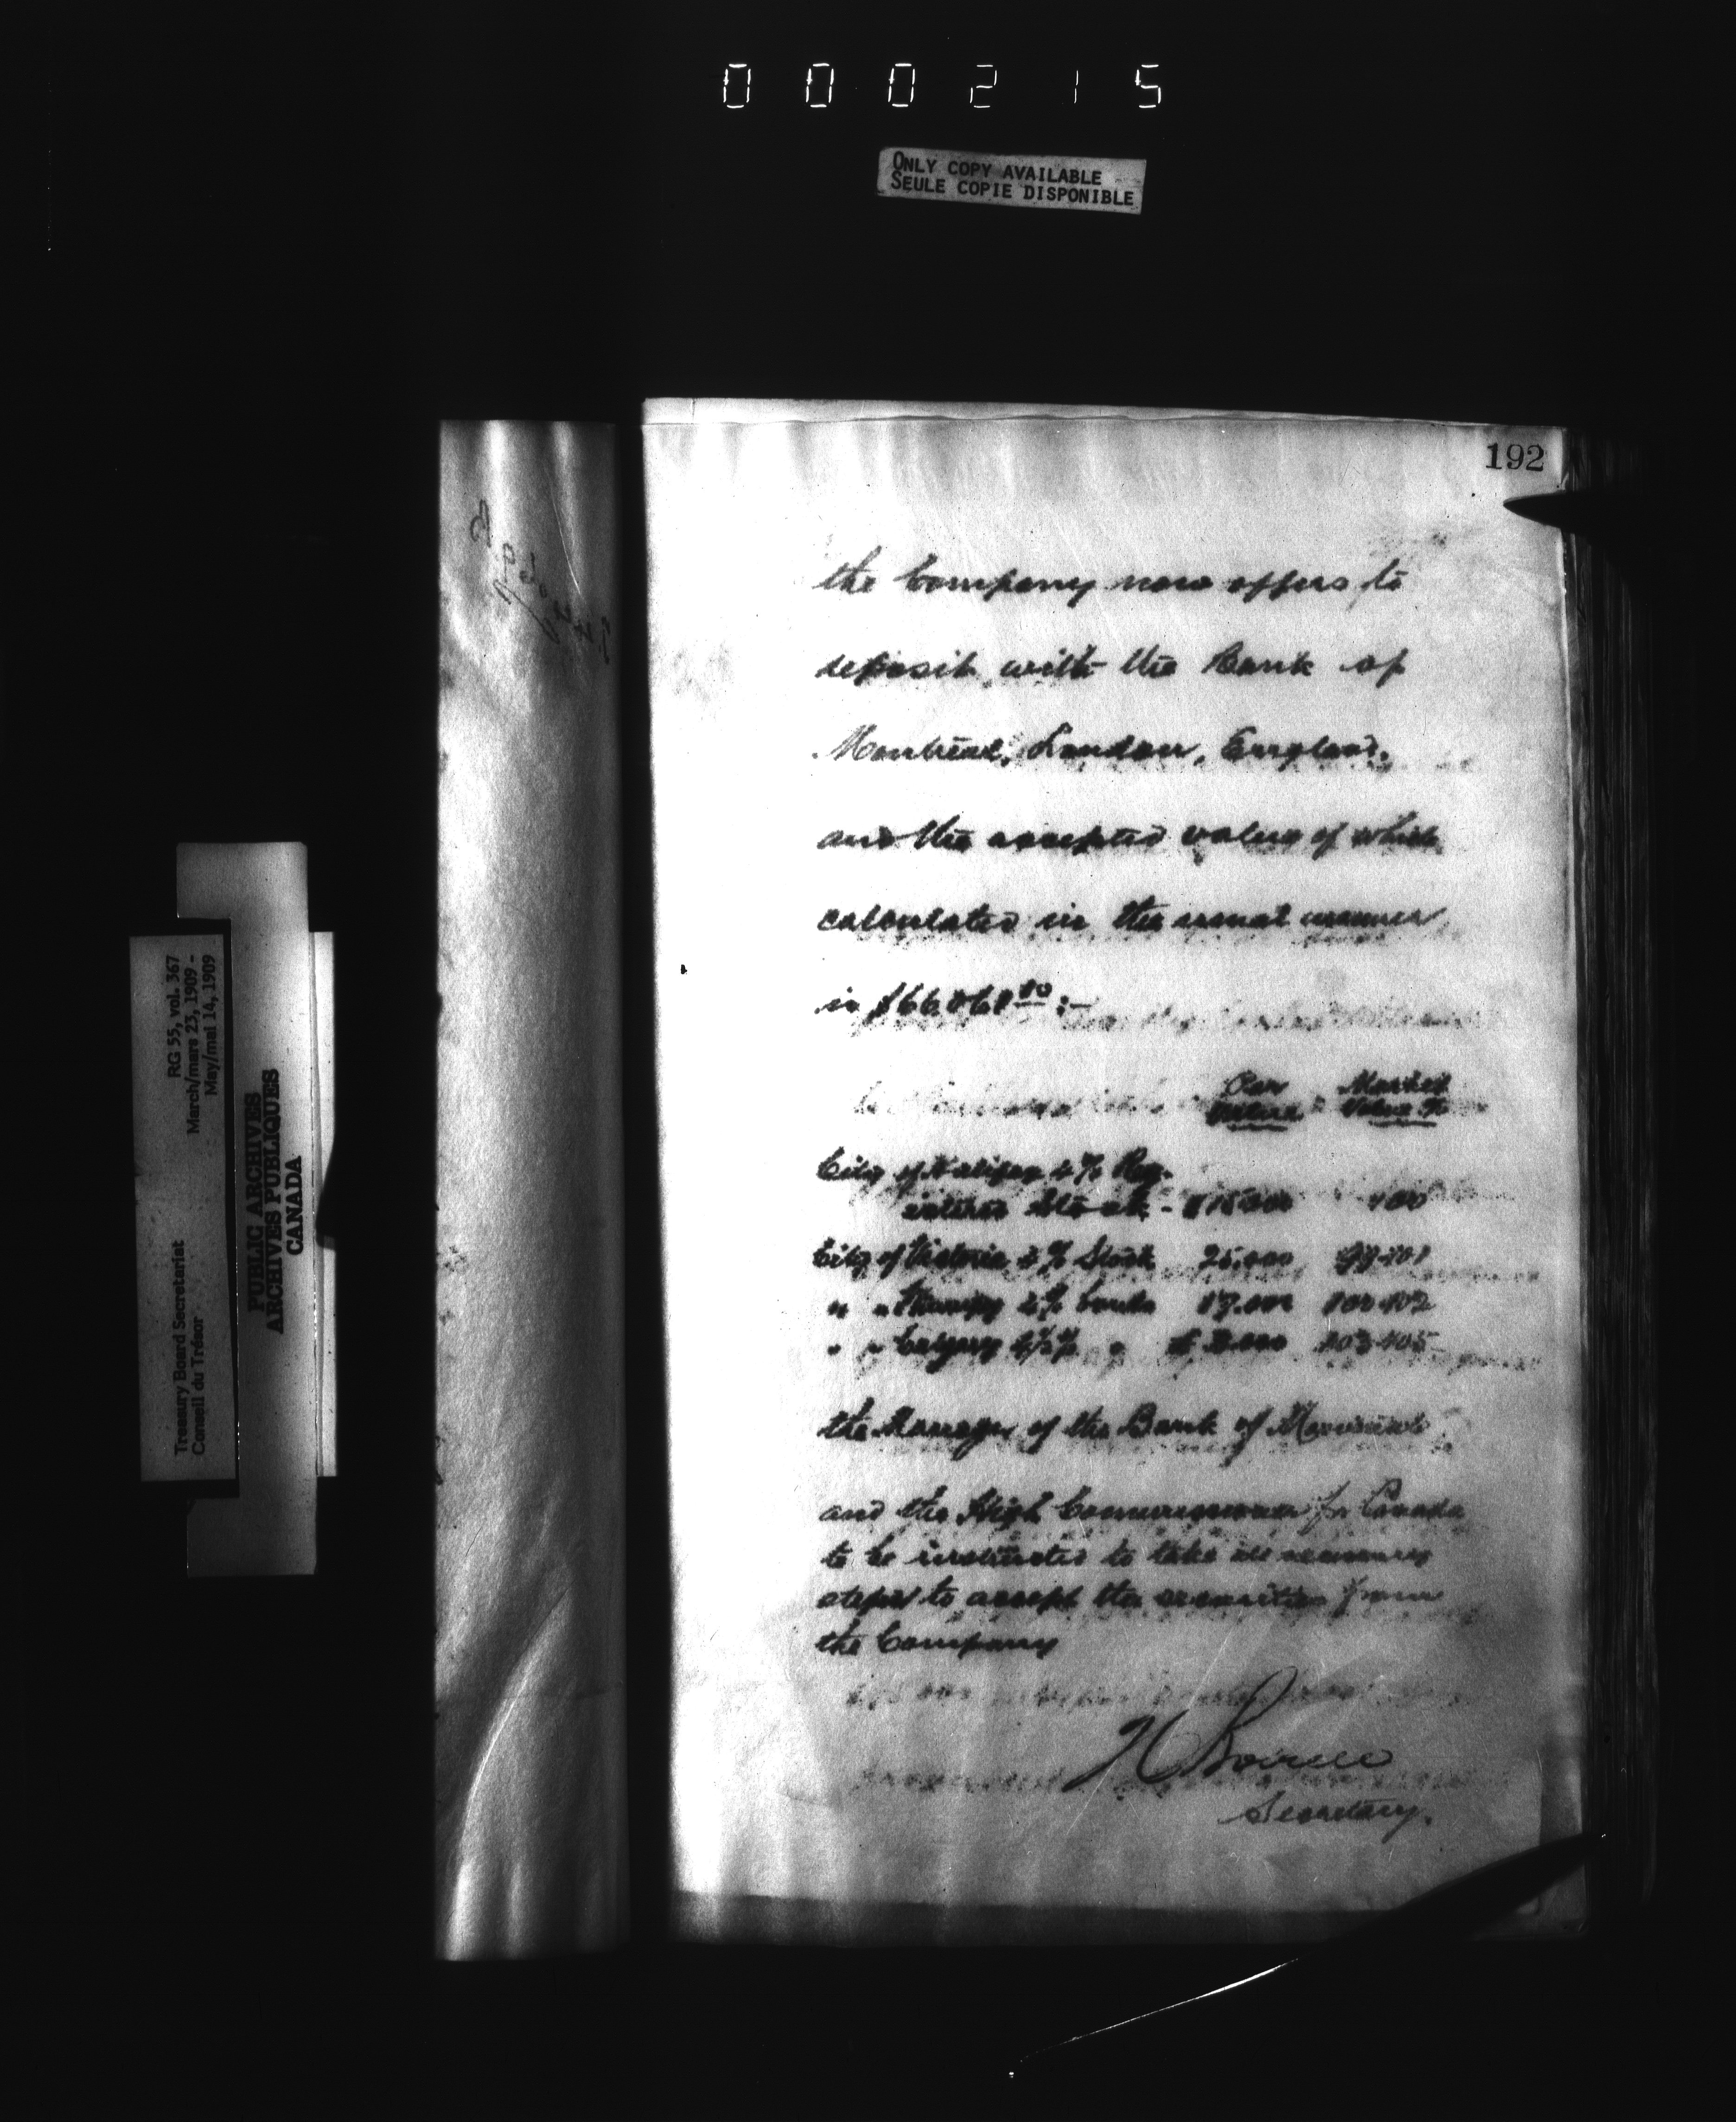 000215
ONLY COPY AVAILABLE
SEULE COPIE DISPONIBLE
192
the Company now offers to
deposit with the Bank of
Montreal, London, England,
and the accepted value of which
calculated in the usual manner
is
Par Market
Value Value %
City of Halifax 4% Reg-
istered Stock - $15000 100
City of Victoria 4% Stock 25,000 99-101
" " 4% bonds 100-102
" " Calgary 4½% " 103-105
the Manager of the Bank of Montreal
and the High Commissioner for Canada
to be instructed to take all necessary
steps to accept the securities from
the Company
Secretary.
RG 55, vol. 367
March/mars 23, 1909 -
May/mai 14, 1909
Treasury Board Secretariat
Conseil du Trésor
PUBLIC ARCHIVES
ARCHIVES PUBLIQUES
CANADA